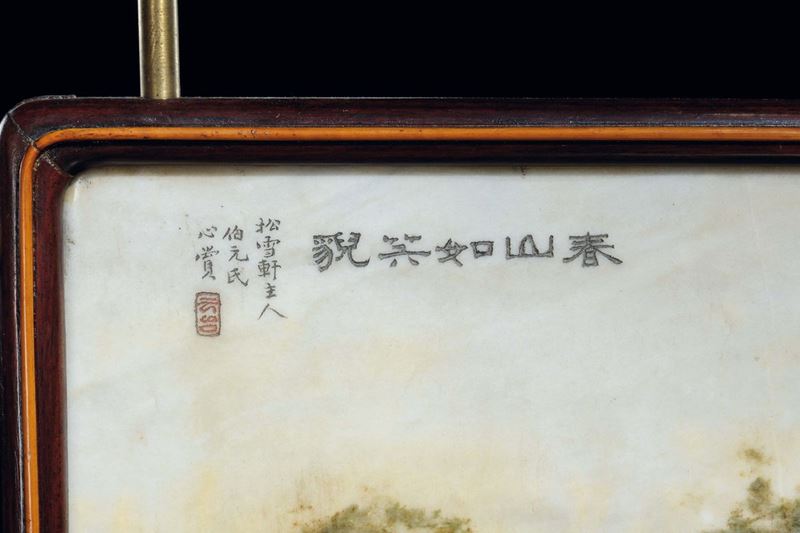 春山如笑貌
松雪軒主人
伯元氏
心賞